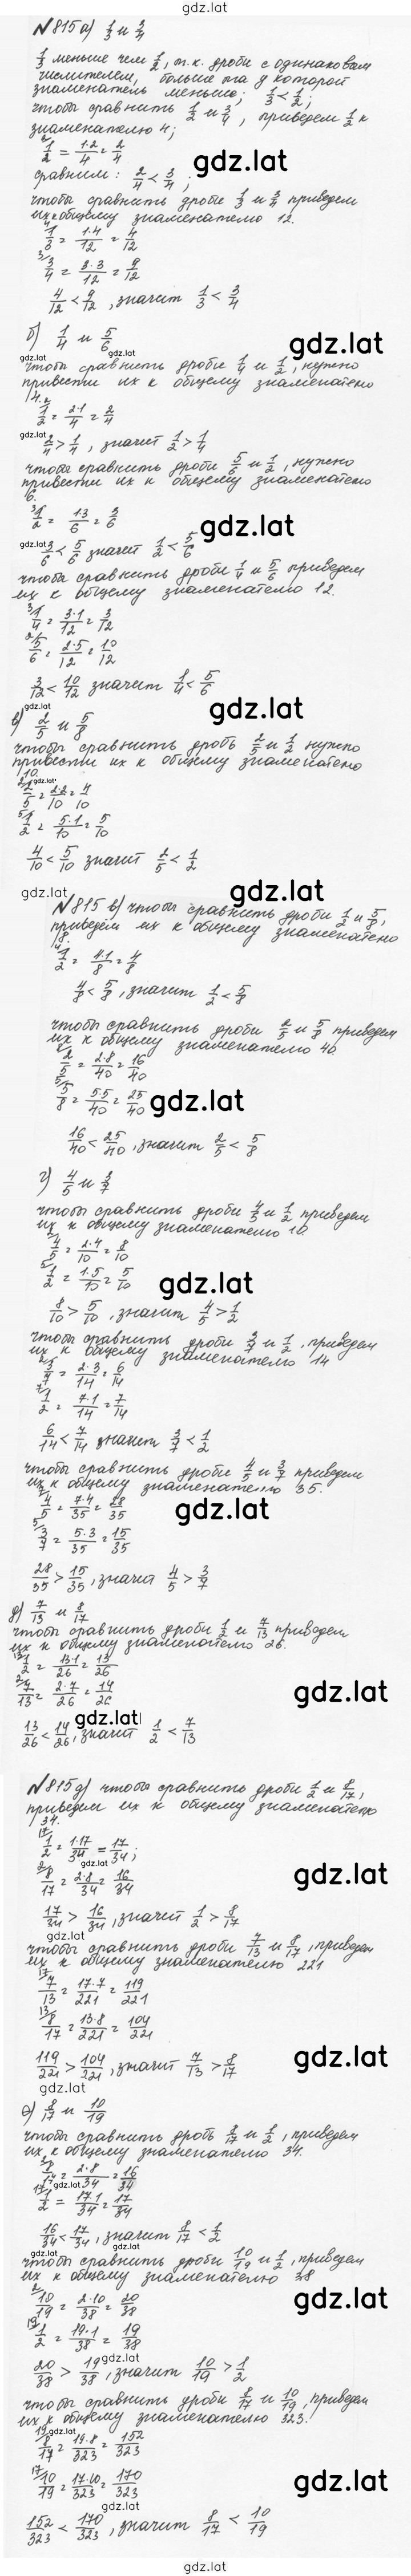 gdz.lat
№815 а) 1/3 и 3/4
1/3 меньше чем 1/2, т.к. дроби с одинаковым
числителем, больше та у которой
знаменатель меньше; 1/3 < 1/2;
чтобы сравнить 1/2 и 3/4, приведем 1/2 к
знаменателю 4;
1/2 = 1·2/4 = 2/4
gdz.lat
сравним: 2/4 < 3/4;
чтобы сравнить дроби 1/3 и 3/4 приведем
их к общему знаменателю 12.
1/3 = 1·4/12 = 4/12
3/4 = 3·3/12 = 9/12
4/12 < 9/12, значит 1/3 < 3/4
б) 1/4 и 5/6
gdz.lat
gdz.lat
gdz.lat
чтобы сравнить дроби 1/4 и 1/2, нужно
привести их к общему знаменателю
4.
1/2 = 2·1/4 = 2/4
gdz.lat
2/4 > 1/4, значит 1/2 > 1/4
чтобы сравнить дроби 5/6 и 1/2, нужно
привести их к общему знаменателю
6.
1/2 = 13/6 = 3/6
gdz.lat
gdz.lat
3/6 < 5/6 значит 1/2 < 5/6
чтобы сравнить дроби 1/4 и 5/6 приведем
их к общему знаменателю 12.
1/4 = 3·1/12 = 3/12
5/6 = 2·5/12 = 10/12
3/12 < 10/12 значит 1/4 < 5/6
gdz.lat
gdz.lat
в) 2/5 и 5/8
чтобы сравнить дробь 2/5 и 1/2 нужно
привести их к общему знаменателю
10.
gdz.lat
2/5 = 2·2/10 = 4/10
1/2 = 5·1/10 = 5/10
4/10 < 5/10 значит 2/5 < 1/2
gdz.lat
gdz.lat
№815 в) чтобы сравнить дроби 1/2 и 5/8,
приведем их к общему знаменателю
8.
1/2 = 4·1/8 = 4/8
4/8 < 5/8, значит 1/2 < 5/8
чтобы сравнить дроби 2/5 и 5/8 приведем
их к общему знаменателю 40.
2/5 = 2·8/40 = 16/40
5/8 = 5·5/40 = 25/40
gdz.lat
16/40 < 25/40, значит 2/5 < 5/8
г) 4/5 и 3/7
чтобы сравнить дроби 4/5 и 1/2 приведем
их к общему знаменателю 10.
4/5 = 2·4/10 = 8/10
1/2 = 1·5/10 = 5/10
gdz.lat
8/10 > 5/10, значит 4/5 > 1/2
чтобы сравнить дроби 3/7 и 1/2, приведем
их к общему знаменателю 14
3/7 = 2·3/14 = 6/14
1/2 = 7·1/14 = 7/14
6/14 < 7/14 значит 3/7 < 1/2
чтобы сравнить дроби 4/5 и 3/7 приведем
их к общему знаменателю 35.
4/5 = 7·4/35 = 28/35
gdz.lat
3/7 = 5·3/35 = 15/35
28/35 > 15/35, значит 4/5 > 3/7
д) 7/13 и 8/17
чтобы сравнить дроби 1/2 и 7/13 приведем
их к общему знаменателю 26.
1/2 = 13·1/26 = 13/26
7/13 = 2·7/26 = 14/26
gdz.lat
gdz.lat
13/26 < 14/26, значит 1/2 < 7/13
№815 д) чтобы сравнить дроби 1/2 и 8/17,
приведем их к общему знаменателю
34.
1/2 = 1·17/34 = 17/34;
gdz.lat
gdz.lat
8/17 = 2·8/34 = 16/34
17/34 > 16/34, значит 1/2 > 8/17
gdz.lat
чтобы сравнить дроби 7/13 и 8/17, приведем
их к общему знаменателю 221
7/13 = 17·7/221 = 119/221
8/17 = 13·8/221 = 104/221
119/221 > 104/221, значит 7/13 > 8/17
gdz.lat
gdz.lat
е) 8/17 и 10/19
чтобы сравнить дробь 8/17 и 1/2, приведем
их к общему знаменателю 34.
8/17 = 2·8/34 = 16/34
gdz.lat
1/2 = 17·1/34 = 17/34
16/34 < 17/34, значит 8/17 < 1/2
gdz.lat
gdz.lat
чтобы сравнить дроби 10/19 и 1/2, приведем
их к общему знаменателю 38
10/19 = 2·10/38 = 20/38
gdz.lat
1/2 = 19·1/38 = 19/38
gdz.lat
20/38 > 19/38, значит 10/19 > 1/2
чтобы сравнить дроби 8/17 и 10/19, приведем
их к общему знаменателю 323.
gdz.lat
8/17 = 19·8/323 = 152/323
10/19 = 17·10/323 = 170/323
gdz.lat
gdz.lat
152/323 < 170/323, значит 8/17 < 10/19
gdz.lat